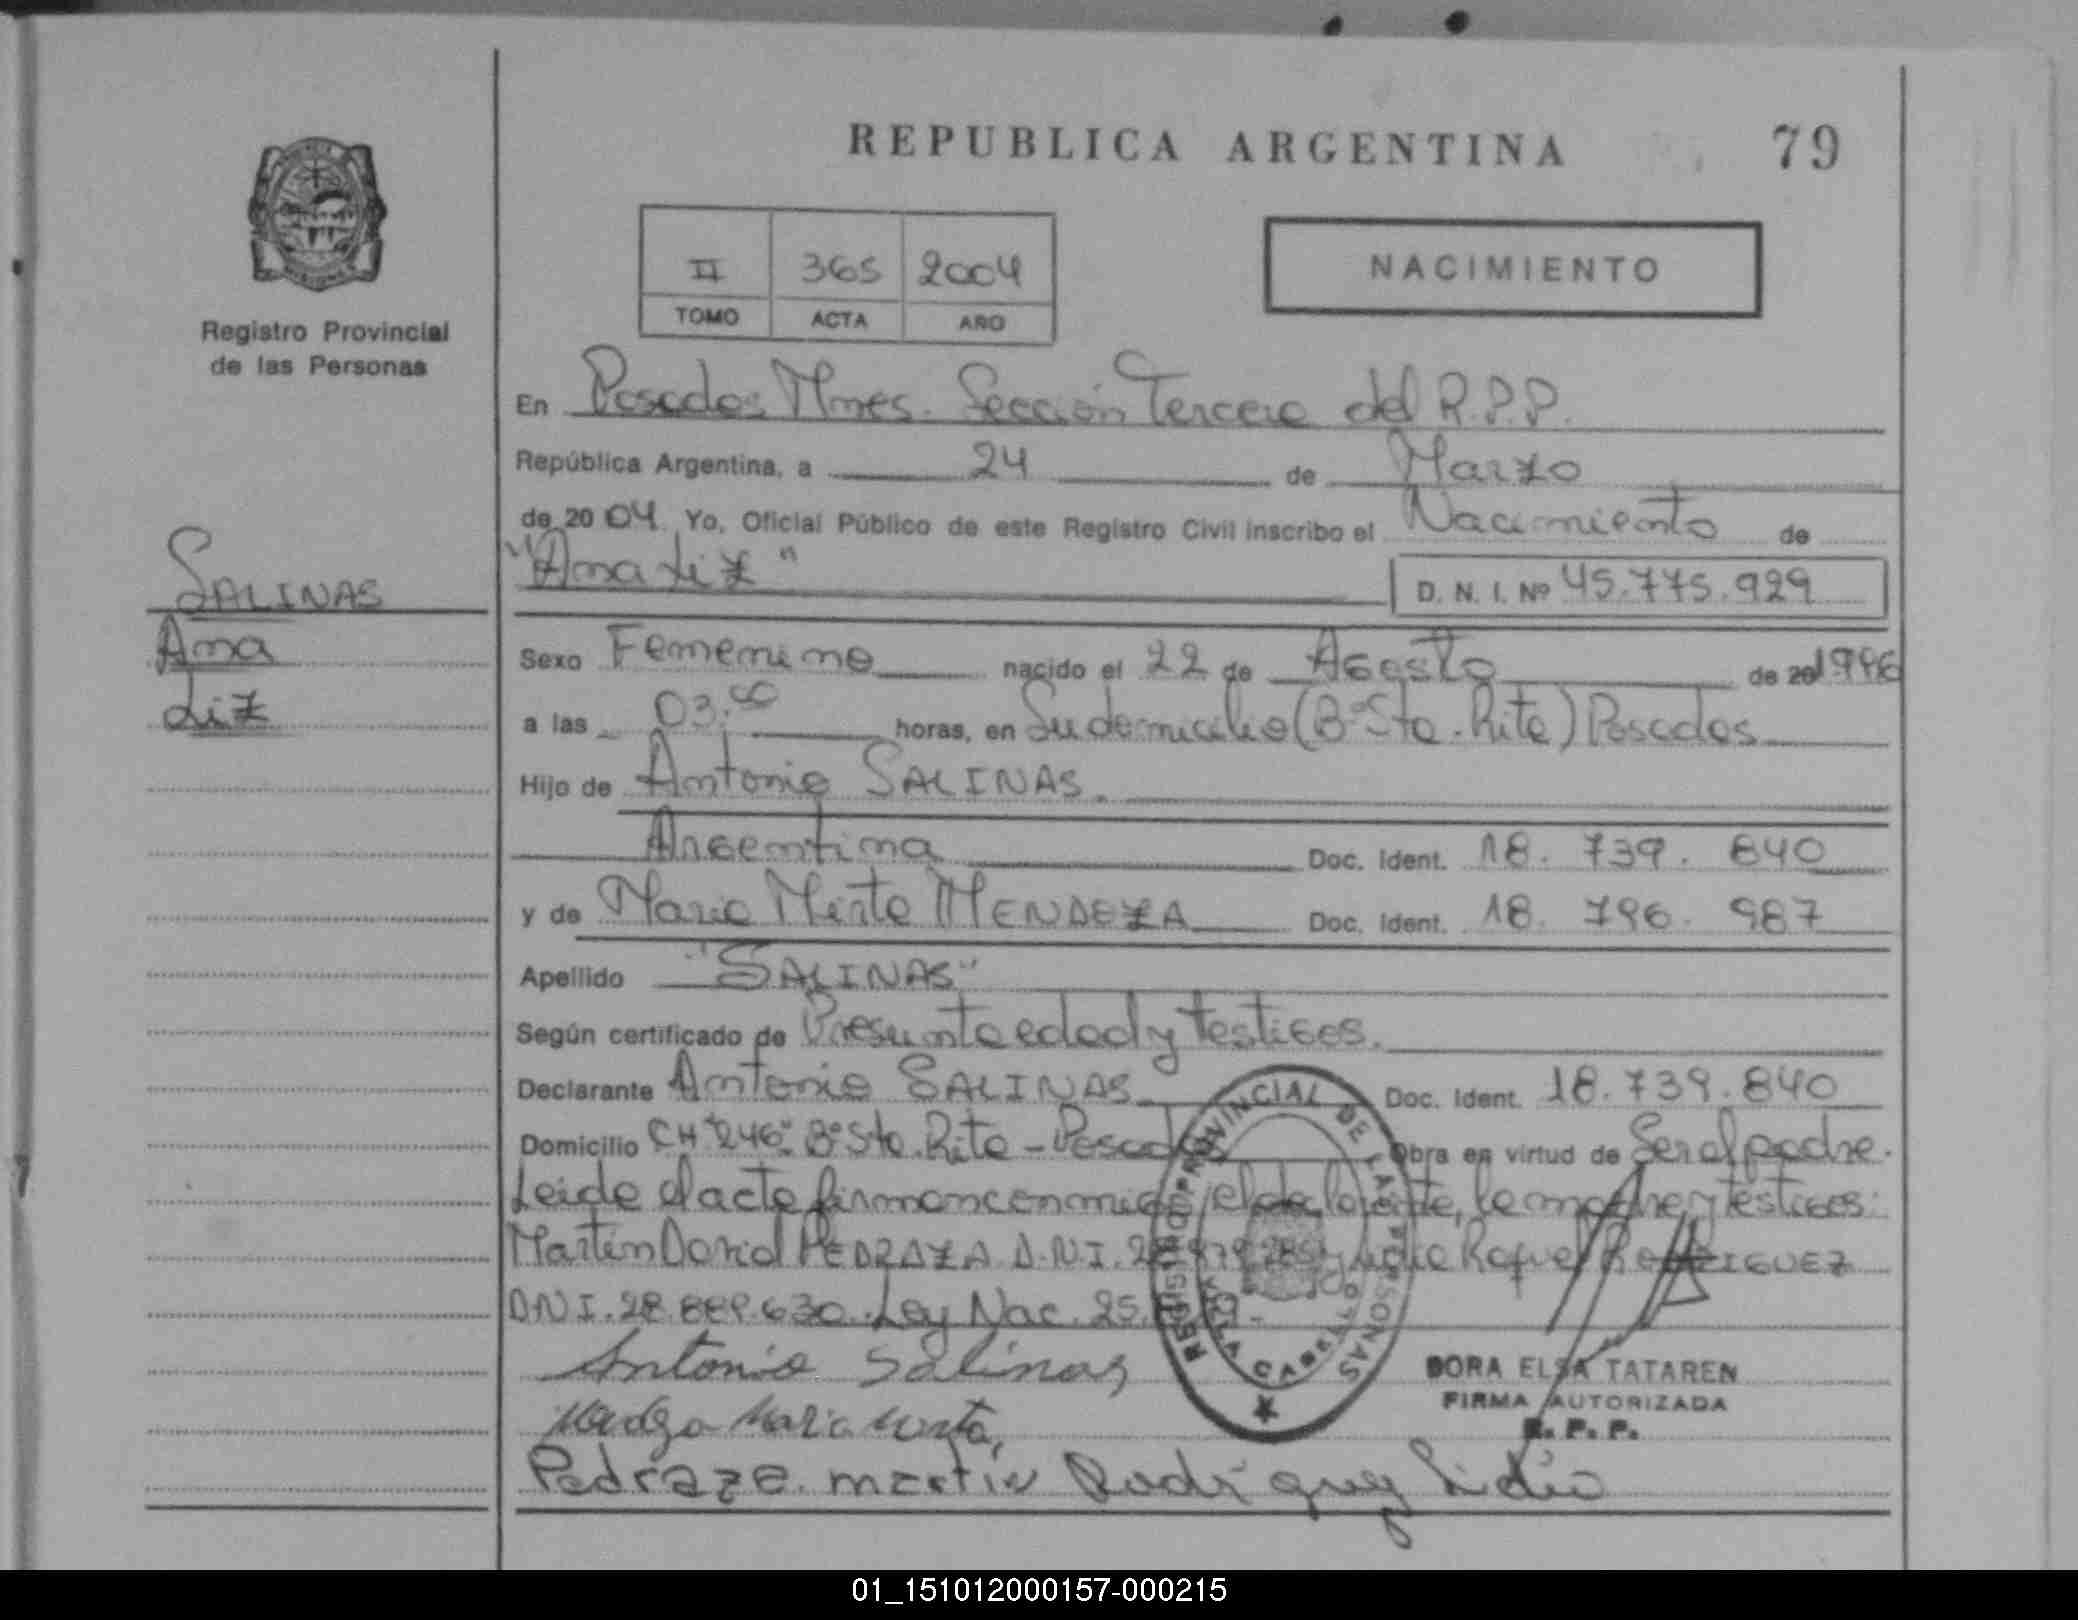 REPUBLICA ARGENTINA 79
II 365 2004
TOMO ACTA AÑO
NACIMIENTO
Registro Provincial
de las Personas
SALINAS
Ana
Liz
En Posadas Mnes. Sección Tercera del R.P.P.
República Argentina, a 24 de Marzo
de 2004 Yo, Oficial Público de este Registro Civil inscribo el Nacimiento de
"Ana Liz" D. N. I. Nº 45.775.929
Sexo Femenino nacido el 22 de Agosto de 20
a las 03.00 horas, en Su domicilio (Bº Sta. Rita) Posadas
Hijo de Antonio SALINAS.
Argentina Doc. Ident. 18. 739. 840
y de Maria Mirta MENDEZA Doc. Ident. 18. 796. 987
Apellido "SALINAS"
Según certificado de Presunta edad y testigos.
Declarante Antonio SALINAS Doc. Ident. 18.739.840
Domicilio CH "246" Bº Sta. Rita - Posadas Obra en virtud de Ser el padre.
Leida el acta firman conmigo el declarante, la madre y testigos:
Martin David PEDRAZA D.N.I. Raquel RODRIGUEZ
DNI. 28.889.630. Ley Nac. 25.
REGISTRO PROVINCIAL DE LAS PERSONAS
Antonio Salinas
DORA ELSA TATAREN
FIRMA AUTORIZADA
R. P. P.
Maria Mirta
Pedraza martin Rodriguez Lidia
01_151012000157-000215